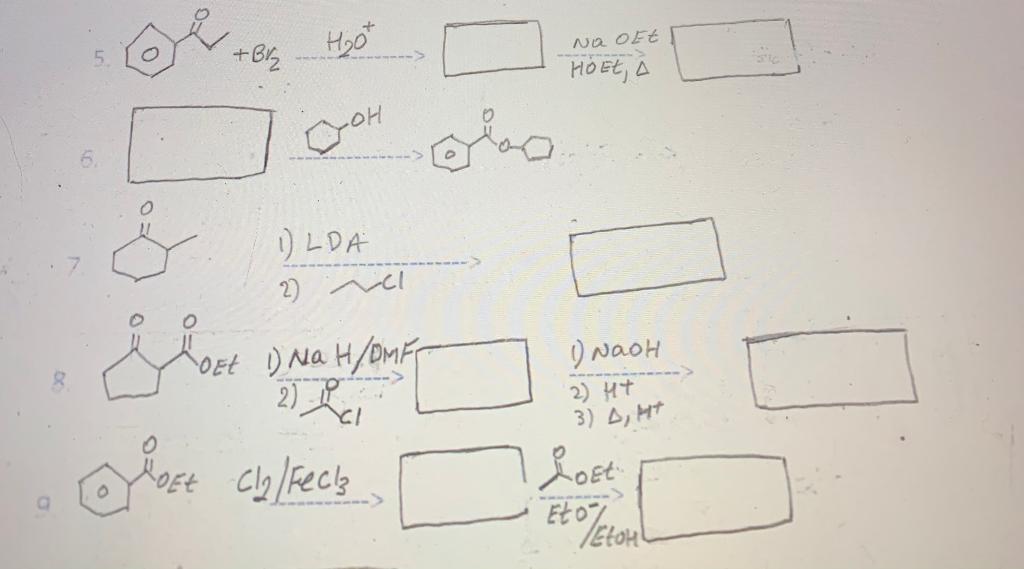 O
5. + Br2 H2O+ Na OEt
HOEt, Δ
6. OH O
O
O
7. 1) LDA
2) Cl
O O
8. OEt 1) NaH/DMF 1) NaOH
2) O Cl 2) H+
3) Δ, H+
O O
9 OEt Cl2/FeCl3 OEt
EtO-/EtOH